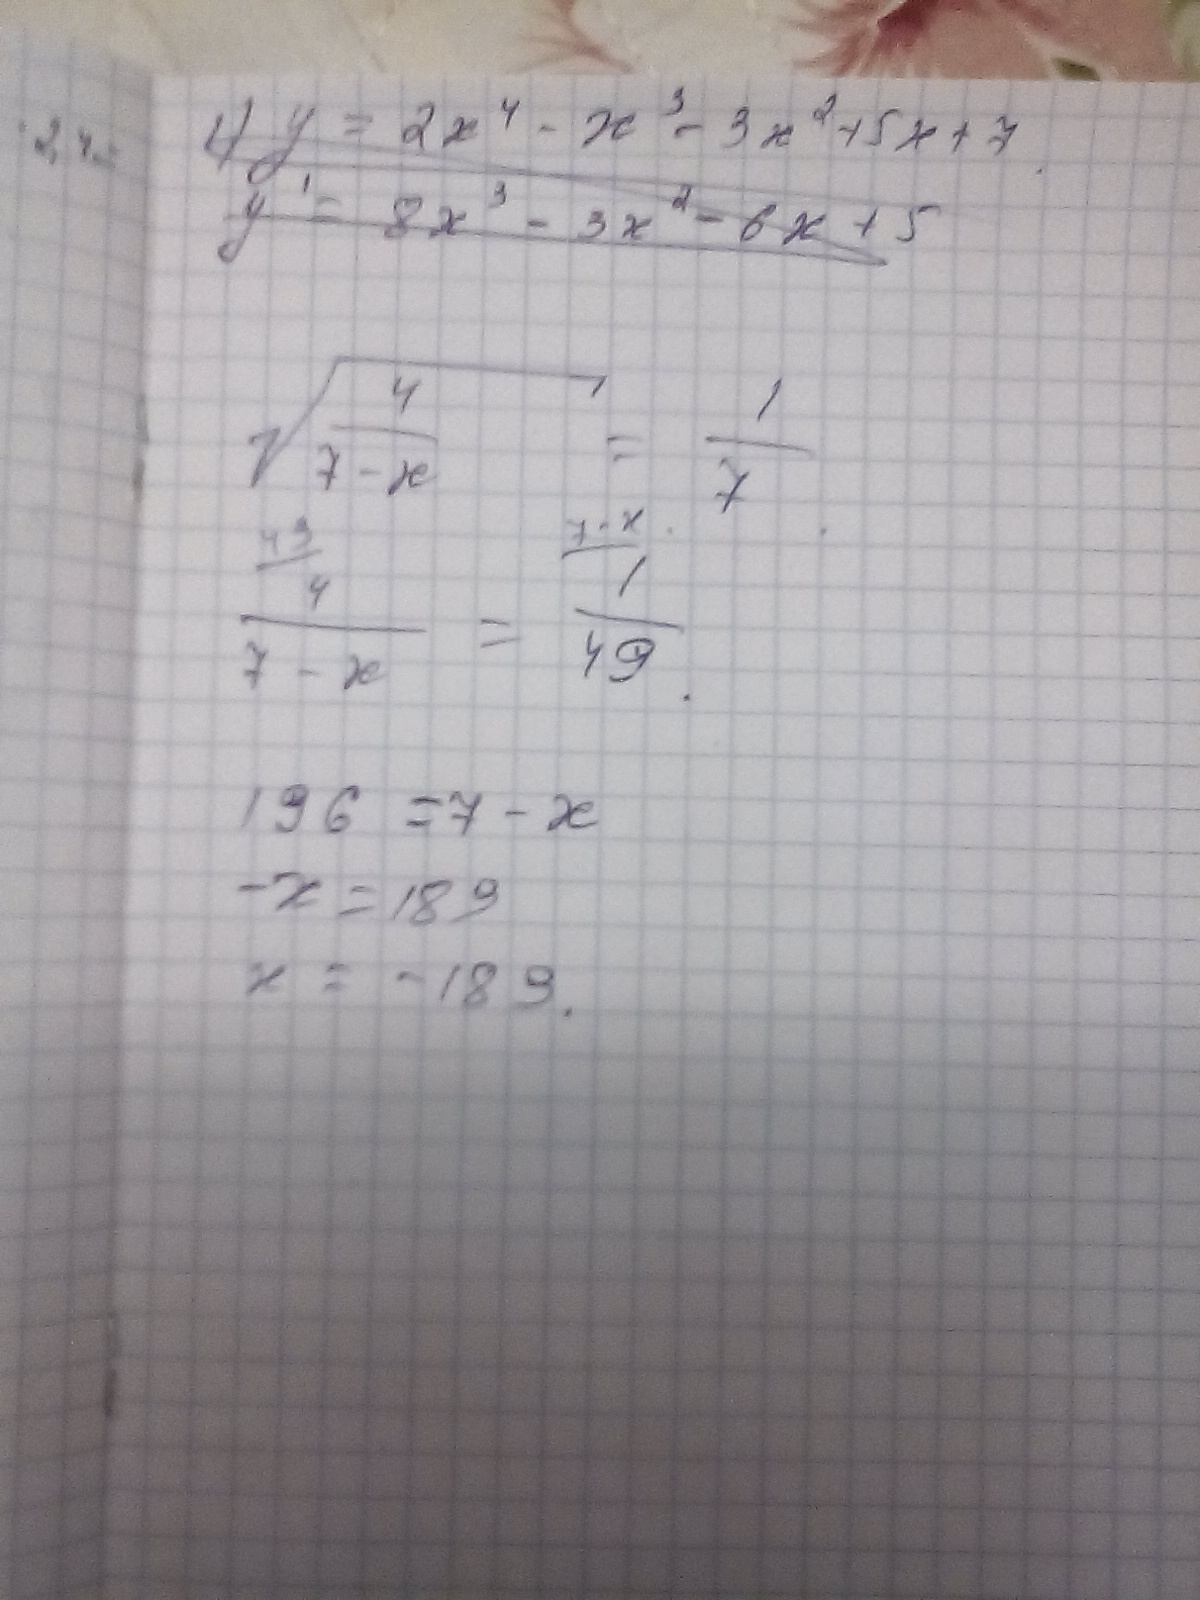 4) y = 2x⁴ - x³ - 3x² + 5x + 7.
y' = 8x³ - 3x² - 6x + 5
√(4/(7 - x)) = 1/7.
4/(7 - x) = 1/49.
7 - x
196 = 7 - x
-x = 189
x = -189.